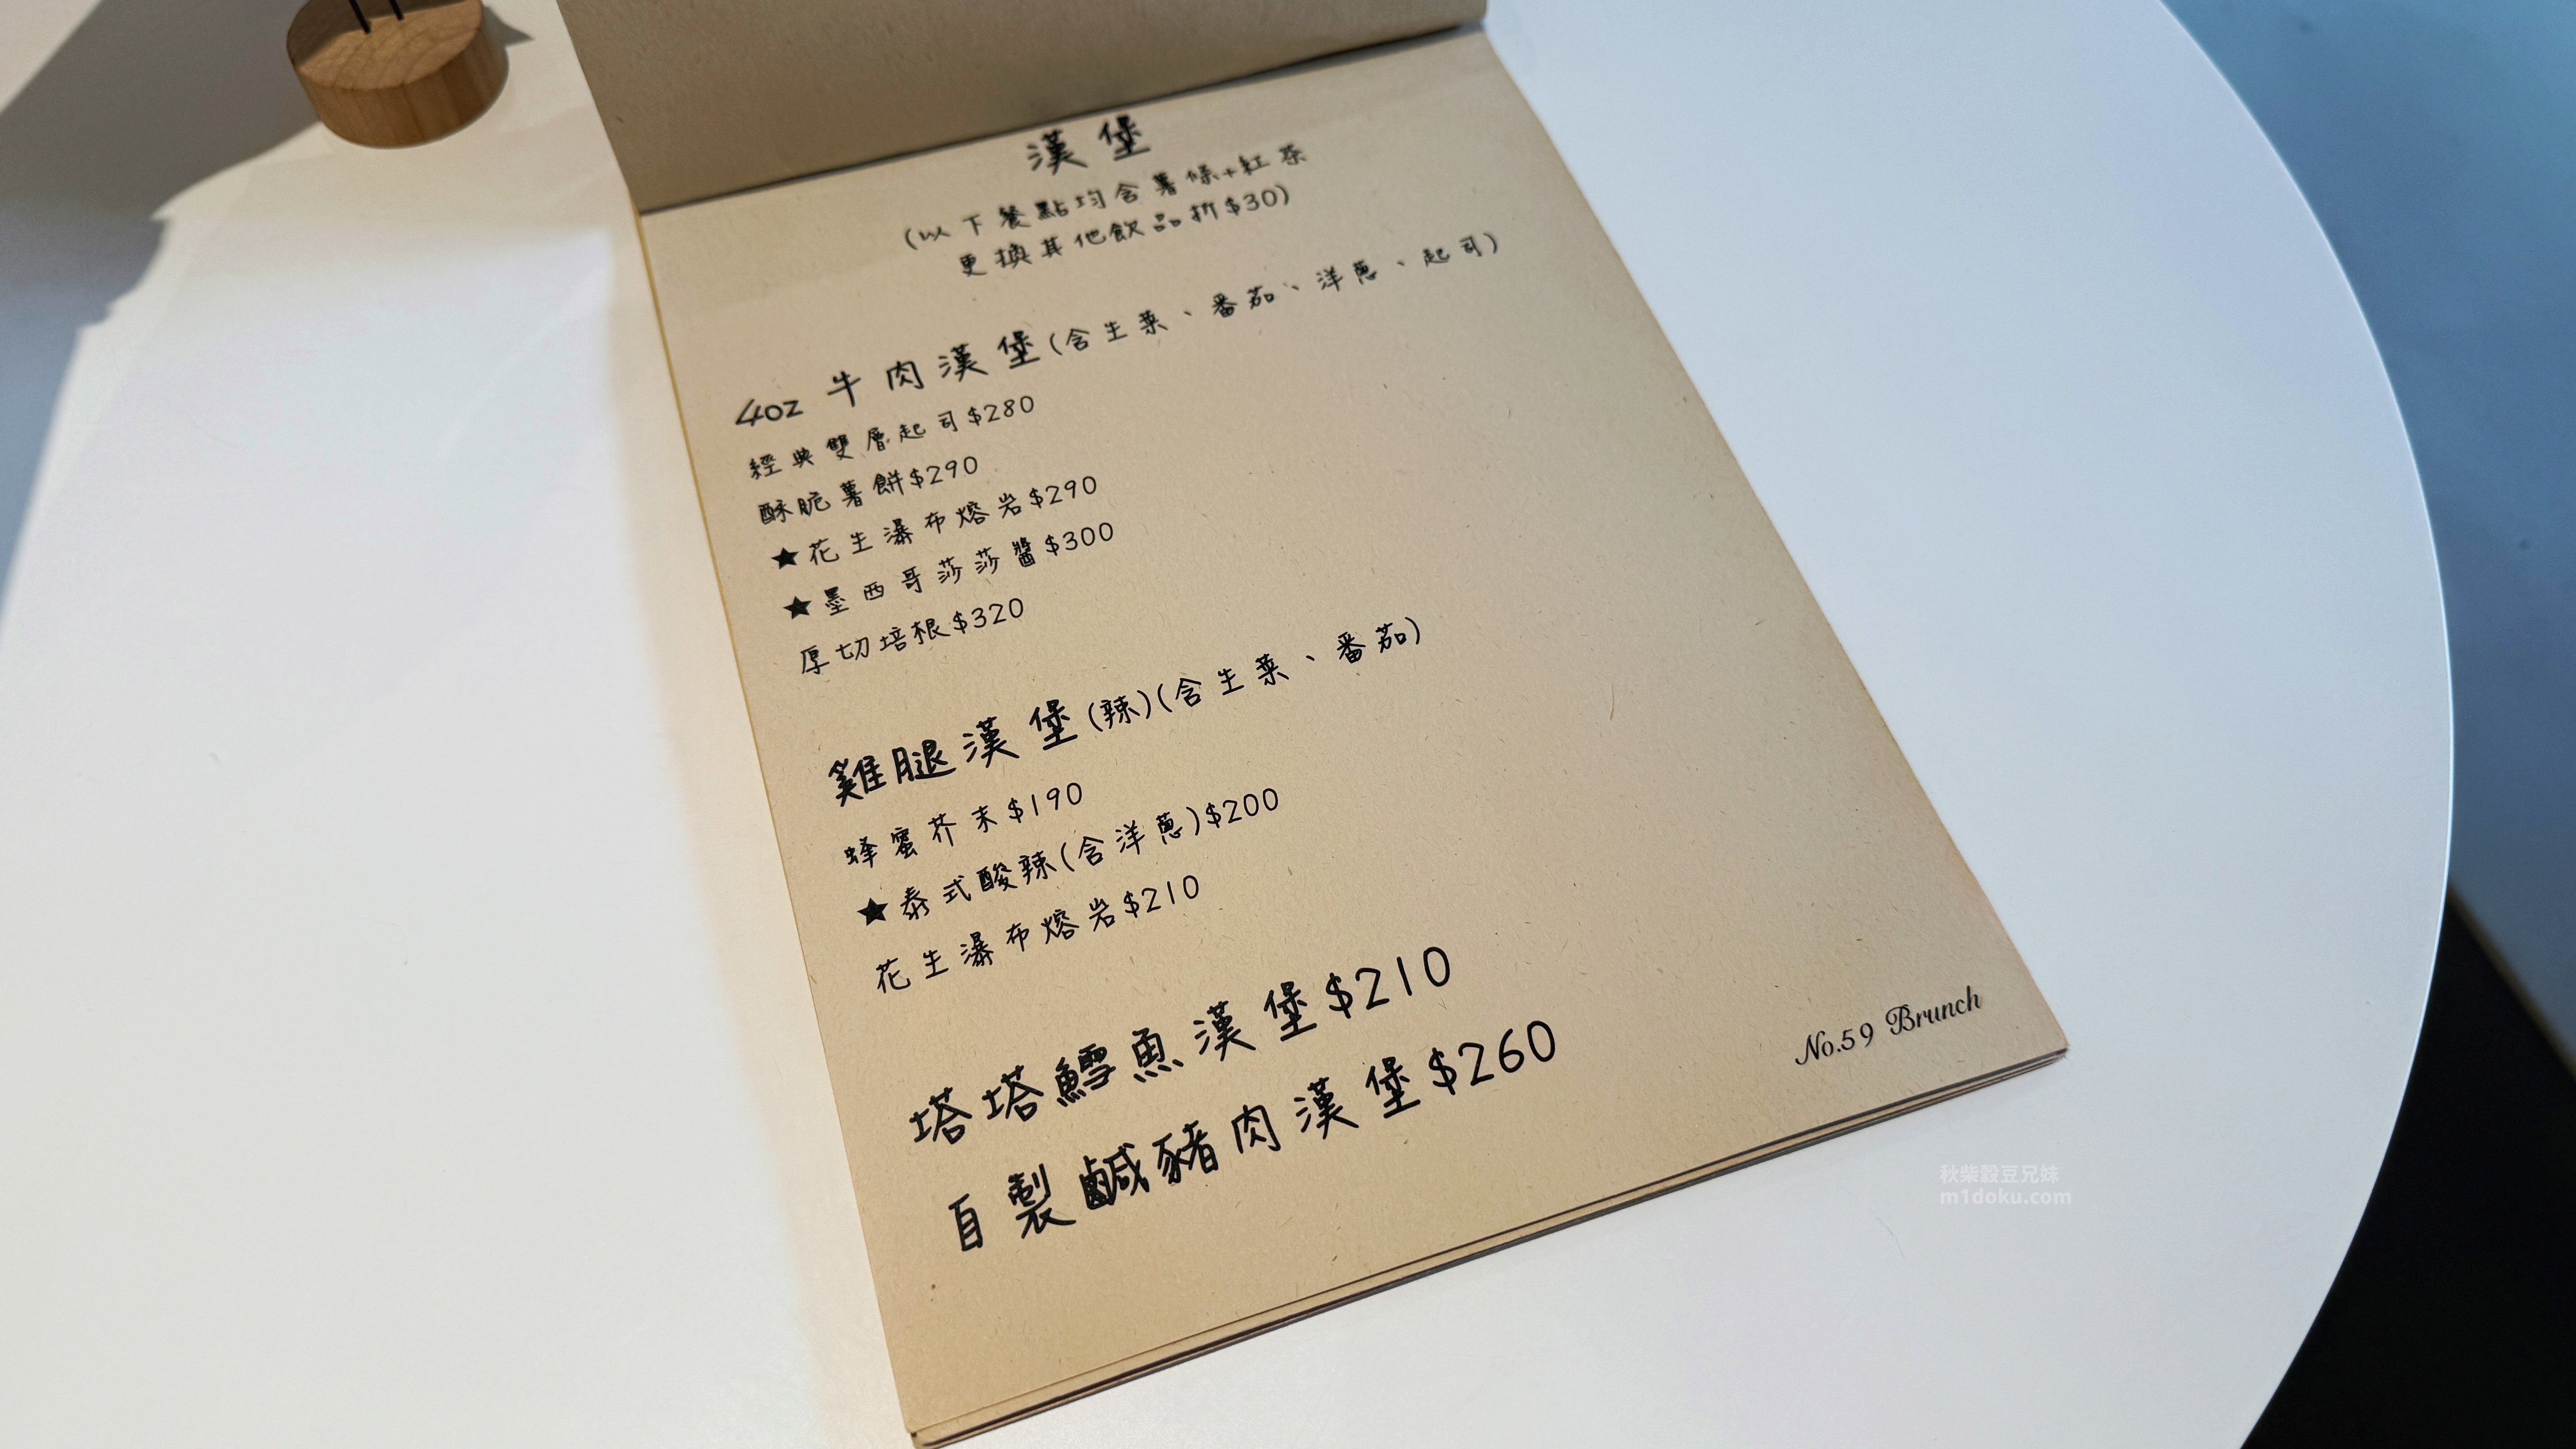 漢堡
(以下餐點均含薯條+紅茶
更換其他飲品折$30)
4oz 牛肉漢堡(含生菜、番茄、洋蔥、起司)
經典雙層起司$280
酥脆薯餅$290
★花生瀑布熔岩$290
★墨西哥莎莎醬$300
厚切培根$320
雞腿漢堡(辣)(含生菜、番茄)
蜂蜜芥末$190
★泰式酸辣(含洋蔥)$200
花生瀑布熔岩$210
塔塔鱈魚漢堡$210
自製鹹豬肉漢堡$260
No.59 Brunch
秋柴穀豆兄妹
m1doku.com